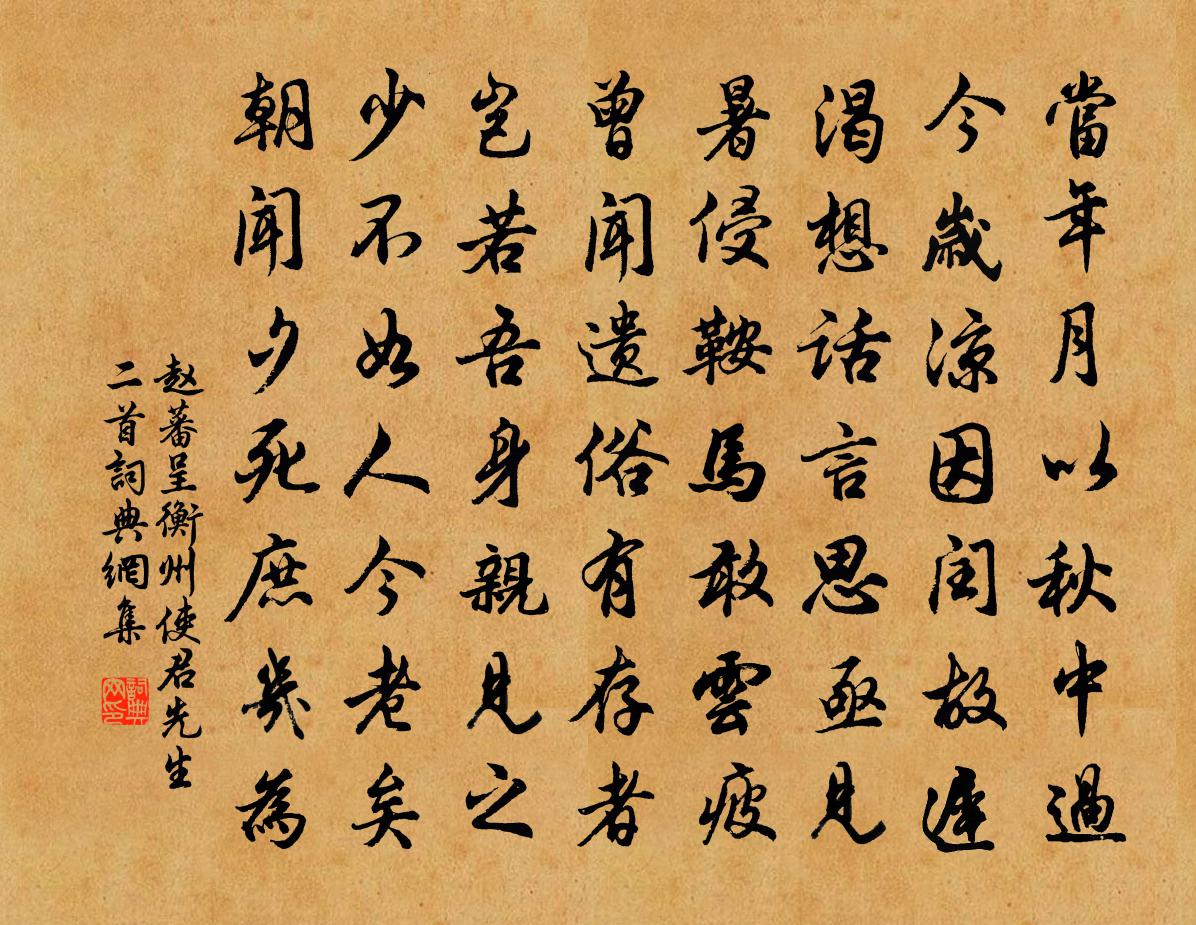 當年月以秋中過
今歲凉因闰故遲
渴想話言思亟見
暑侵鞍馬敢雲疲
曾闻遗俗有存者
豈若吾身親見之
少不如人今老矣
朝闻夕死庶幾為
赵蕃呈衡州使君先生
二首詞典網集
詞典
网印